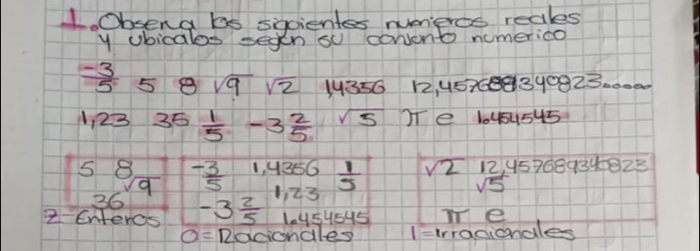 1. Observa los siguientes numeros reales
y ubicalos segun su conjunto numerico
-3/5 5 8 √9 √2 1,4356 12,457689340823.....
1,23 35 1/5 -3 2/5 √5 π e 1.454545
5 8 √9
36
Z=Enteros
-3/5 1,4356 1/5
1,23
-3 2/5 1.454545
Q=Racionales
√2 12,457689340823
√5
π e
I=Irracionales